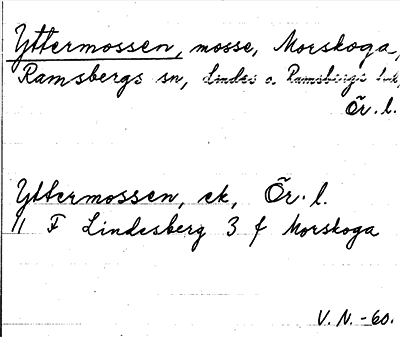 Yttermossen, mosse, Morskoga,
Ramsbergs sn, Lindes o. Ramsbergs hd,
Ör. l.
Yttermossen, ek, Ör. l.
11 F Lindesberg 3 f Morskoga
V. N. -60.